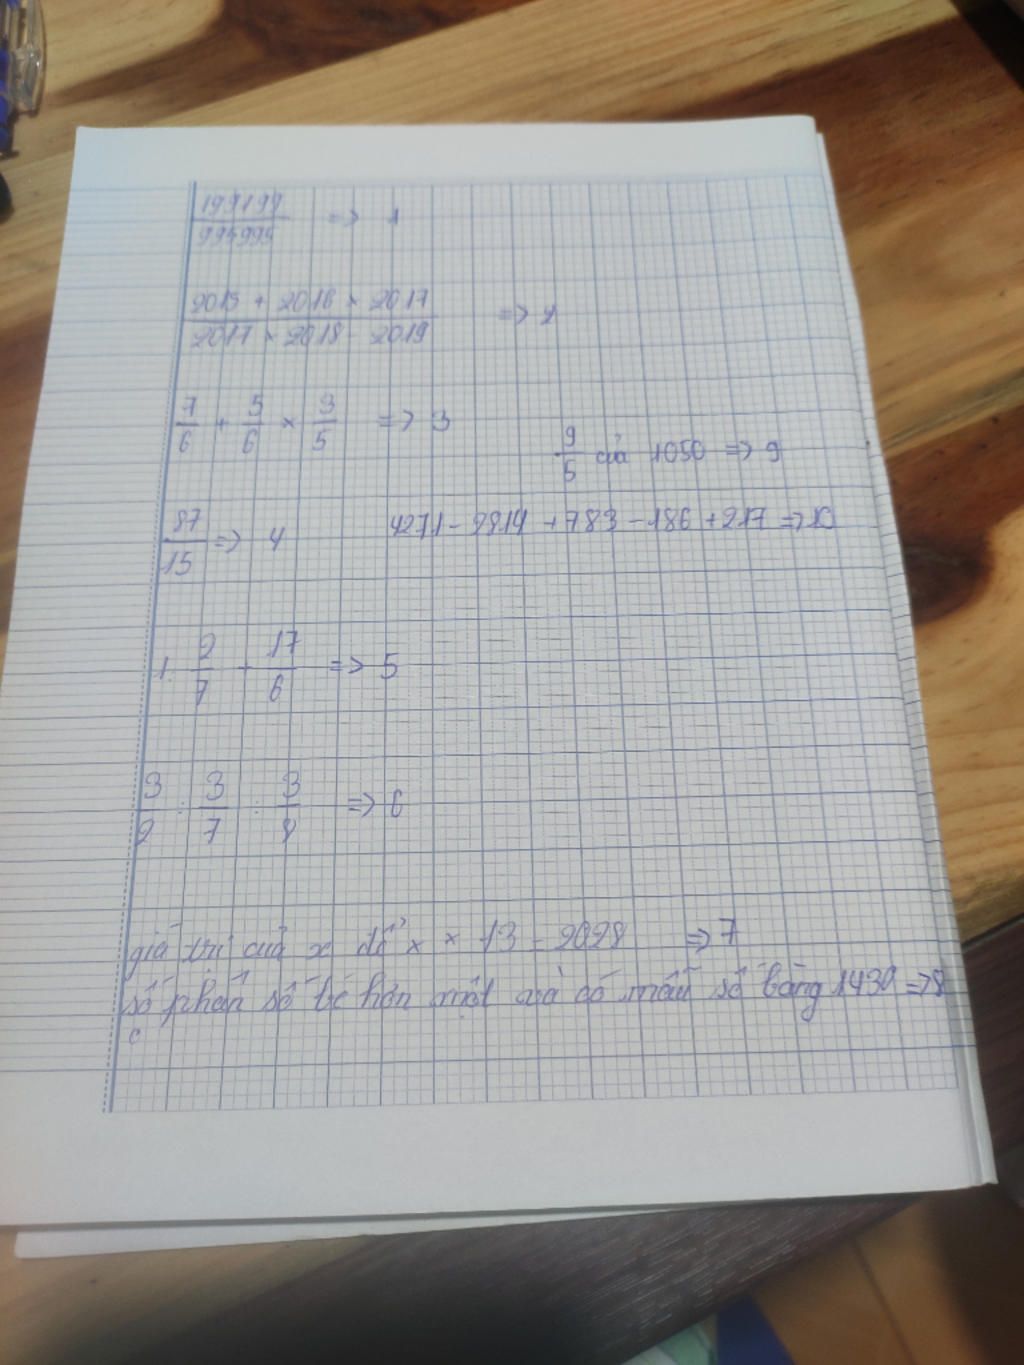 199199 / 995995 => 1
2015 + 2016 × 2017 / 2017 × 2018 - 2019 => 2
7/6 + 5/6 × 3/5 => 3
9/5 của 1050 => 9
87/15 => 4
4271 - 2814 + 783 - 186 + 217 => 10
1: 2/7 + 17/6 => 5
3/2 : 3/7 : 3/8 => 6
giá trị của x để x × 13 = 2028 => 7
số phân số bé hơn một và có mẫu số bằng 1430 => 8